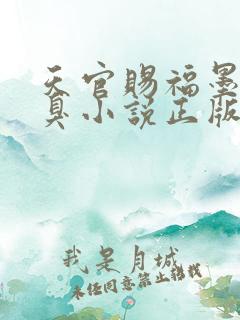 天官赐福墨
真小说正版
我是月城
未经同意禁止转载